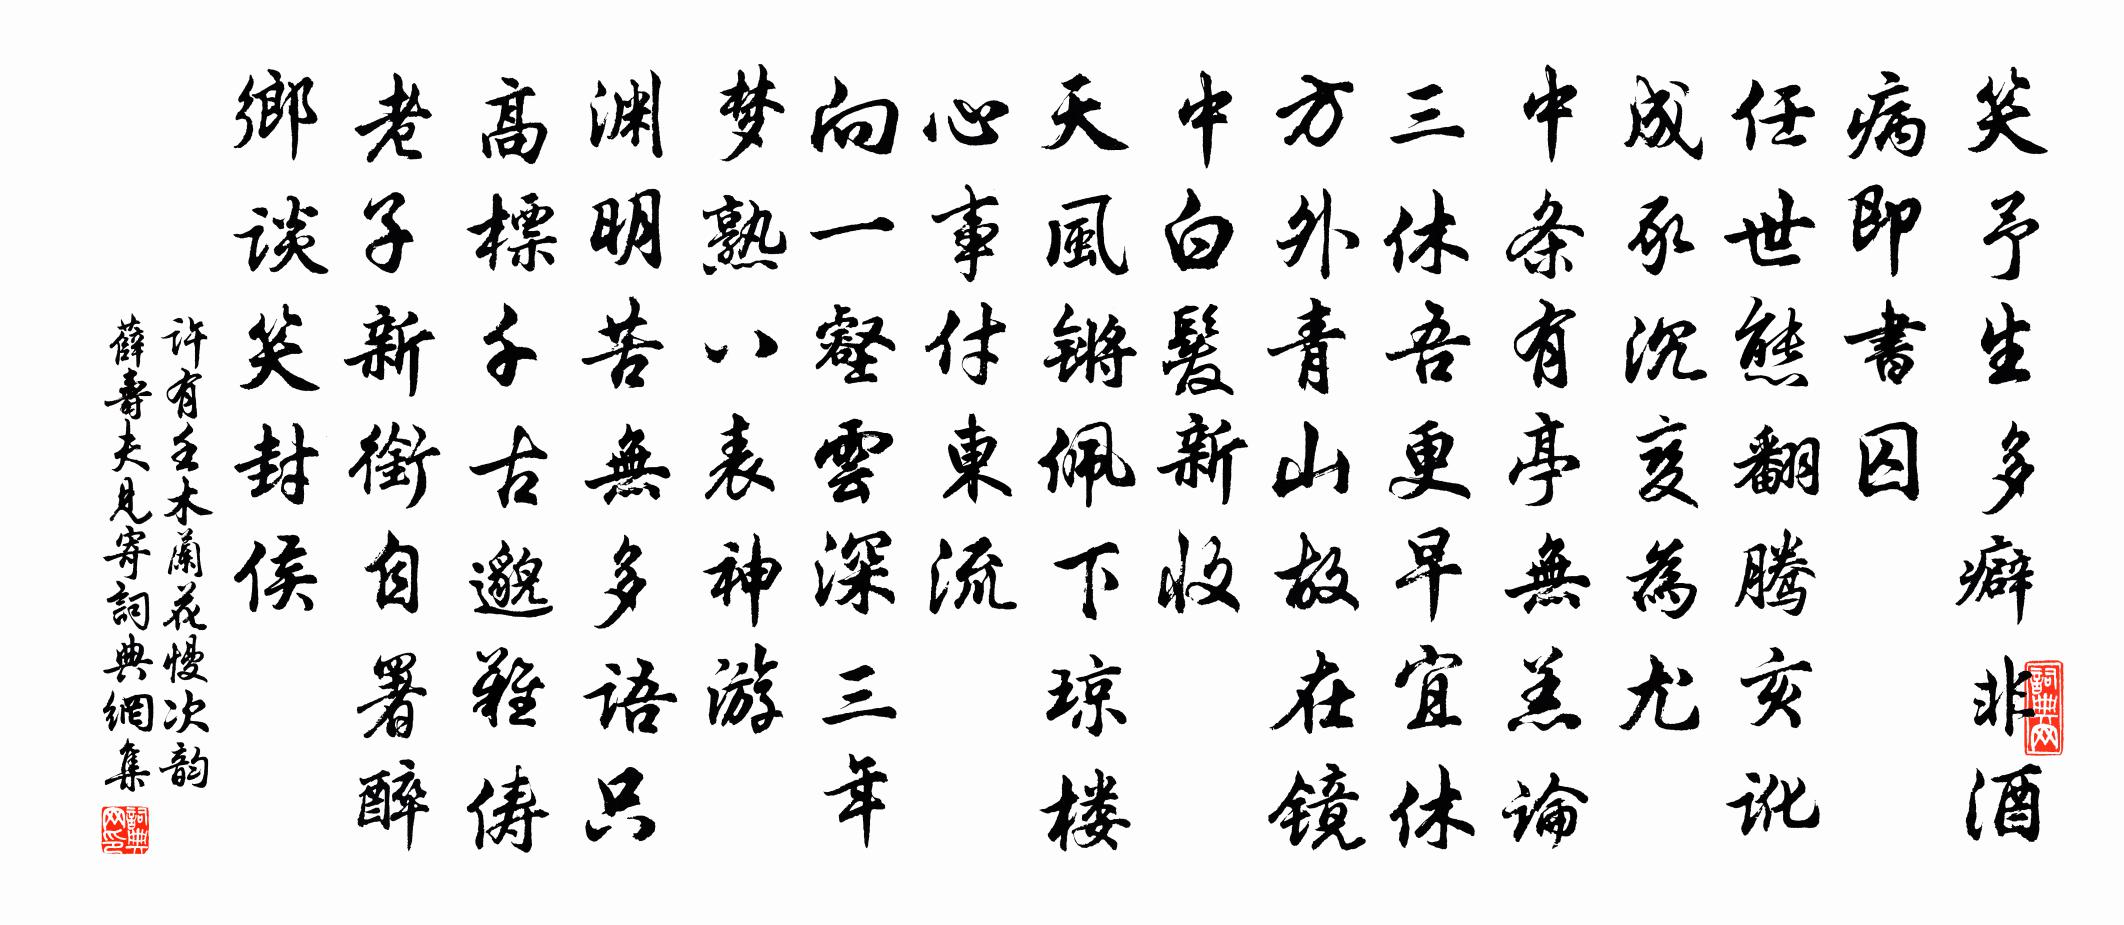 笑予生多癖非酒
病即書囚
任世態翻騰亥訛
成豕沉变為尤
中条有亭無恙論
三休吾更早宜休
方外青山故在镜
中白髮新收
天風锵佩下琼楼
心事付東流
向一壑雲深三年
梦熟八表神游
渊明苦無多語只
高標千古邈難俦
老子新銜自署醉
鄉谈笑封侯
许有壬木蘭花慢次韵
薛壽夫見寄詞典網集
詞典网
詞典网印